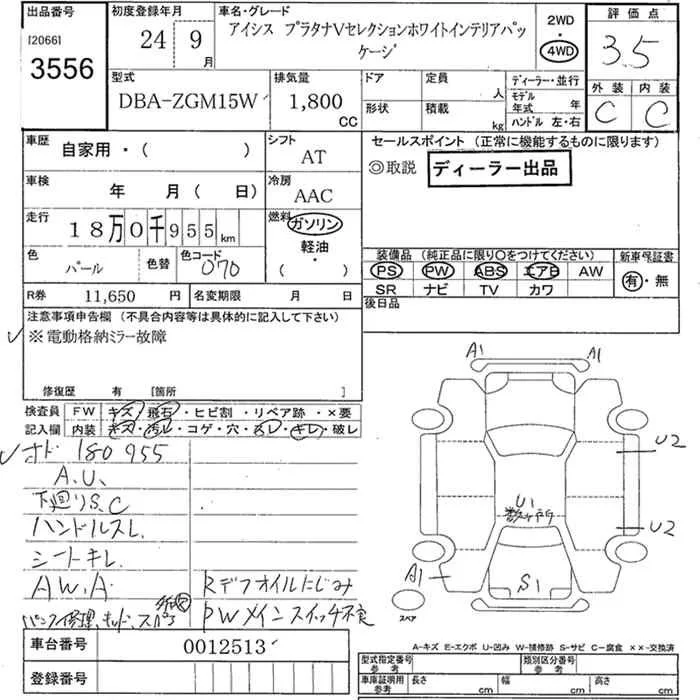 出品番号
[2066]
3556
初度登録年月
24年 9月
車名・グレード
アイシス プラタナVセレクションホワイトインテリアパッケージ
2WD
4WD
評価点
3.5
外装 内装
C C
型式
DBA-ZGM15W
排気量
1,800
CC
ドア
形状
定員 人
積載 kg
ディーラー・並行
モデル年式 年
ハンドル 左・右
車歴
自家用・( )
シフト
AT
車検
年 月( 日)
冷房
AAC
走行
18万0千955km
燃料
ガソリン
軽油・
( )
色
パール
色替
色コード
070
R券 11,650 円
名変期限 月 日
セールスポイント (正常に機能するものに限ります)
◎取説 ディーラー出品
装備品 (純正品に限り○をつけてください)
PS PW ABS エアB AW
SR ナビ TV カワ
新車保証書
有・無
後日品
注意事項申告欄 (不具合内容等は具体的に記入して下さい)
※電動格納ミラー故障
修復歴 有 [箇所 ]
検査員記入欄
FW キズ・飛石・ヒビ割・リペア跡・×要
内装 キズ・汚レ・コゲ・穴・スレ・キレ・破レ
オド 180955
A.U、
下廻りS.C
ハンドルスレ.
シートキレ.
A W.A
Rデフオイルにじみ
PWメインスイッチ不良
A1 A1
U2
U1
数ヶ所
U2
A1
S1
スペア
車台番号 0012513
登録番号
A-キズ E-エクボ U-凹み W-補修跡 S-サビ C-腐食 ××-交換済
型式指定番号
参考
類別区分番号
参考
車庫証明用
参考
長さ cm
幅 cm
高さ cm